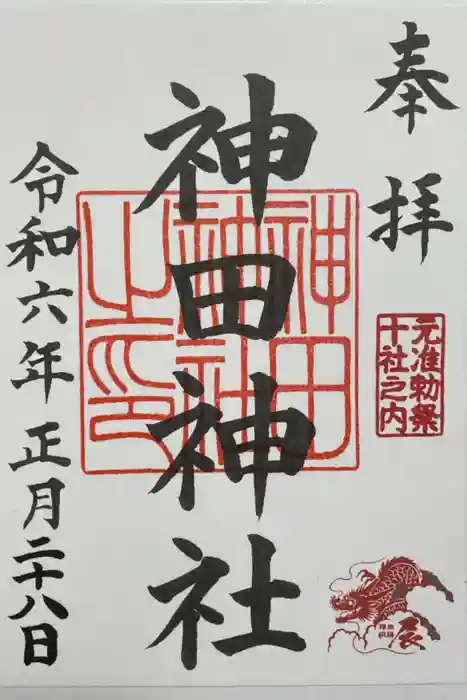 奉拝
元准勅祭
十社之内
辰
神田神社
神田
神社
之印
令和六年正月二十八日